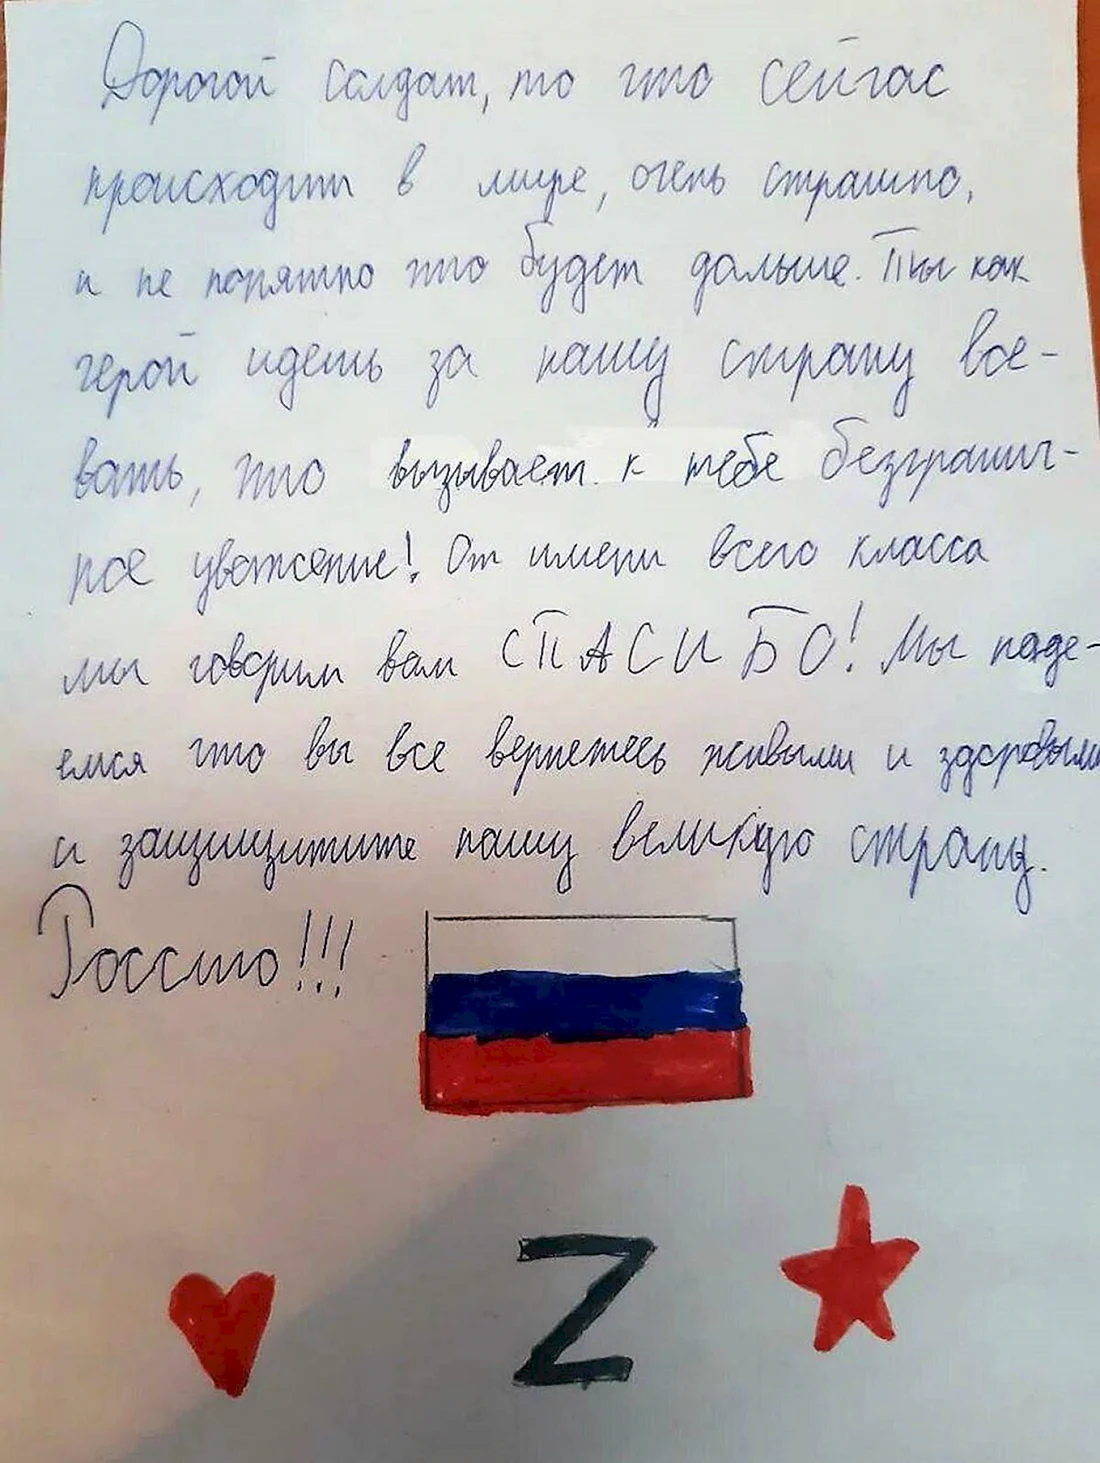 Дорогой солдат, то что сейчас
происходит в мире, очень страшно,
и не понятно что будет дальше. Ты как
герой идешь за нашу страну вое-
вать, что вызывает к тебе безгранич-
ное уважение! От имени всего класса
мы говорим вам СПАСИБО! Мы наде-
емся что вы все вернетесь живыми и здоровыми
и защищитите нашу великую страну.
Россию!!!
Z